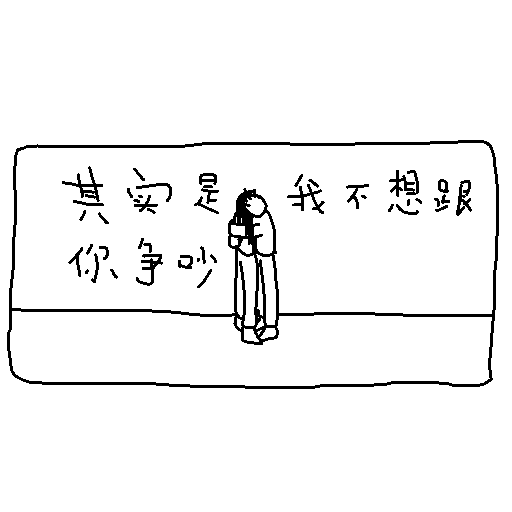 其实是我不想跟
你争吵